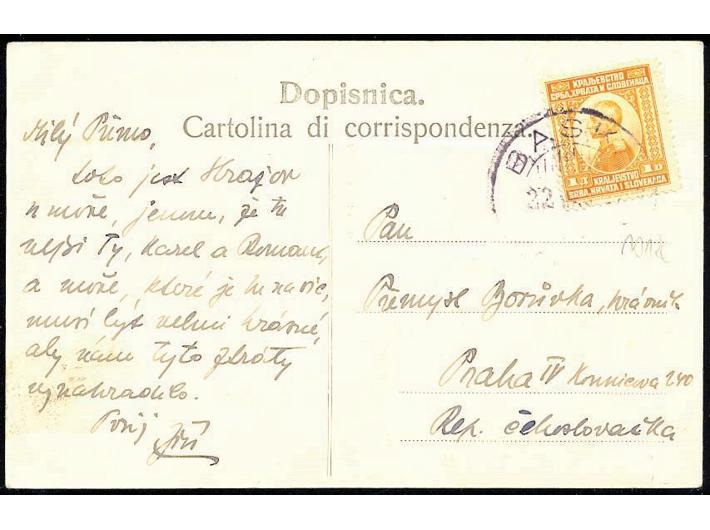 Dopisnica.
Cartolina di corrispondenza.
КРАЉЕВСТВО
СРБА, ХРВАТА И СЛОВЕНАЦА
1 D
KRALJEVSTVO
SRBA, HRVATA I SLOVENACA
BAŠ
22
Milý Přemo,
toto jest Hrajov
u moře, jenom, že tu
nejsi Ty, Karel a Roman,
a moře, které je tu navíc,
musí být velmi krásné,
aby nám tyto ztráty
vynahradilo.
Tvůj
Jiří
Pan
Přemysl Borůvka,
Praha IV 240
Rep. Čechoslovačka